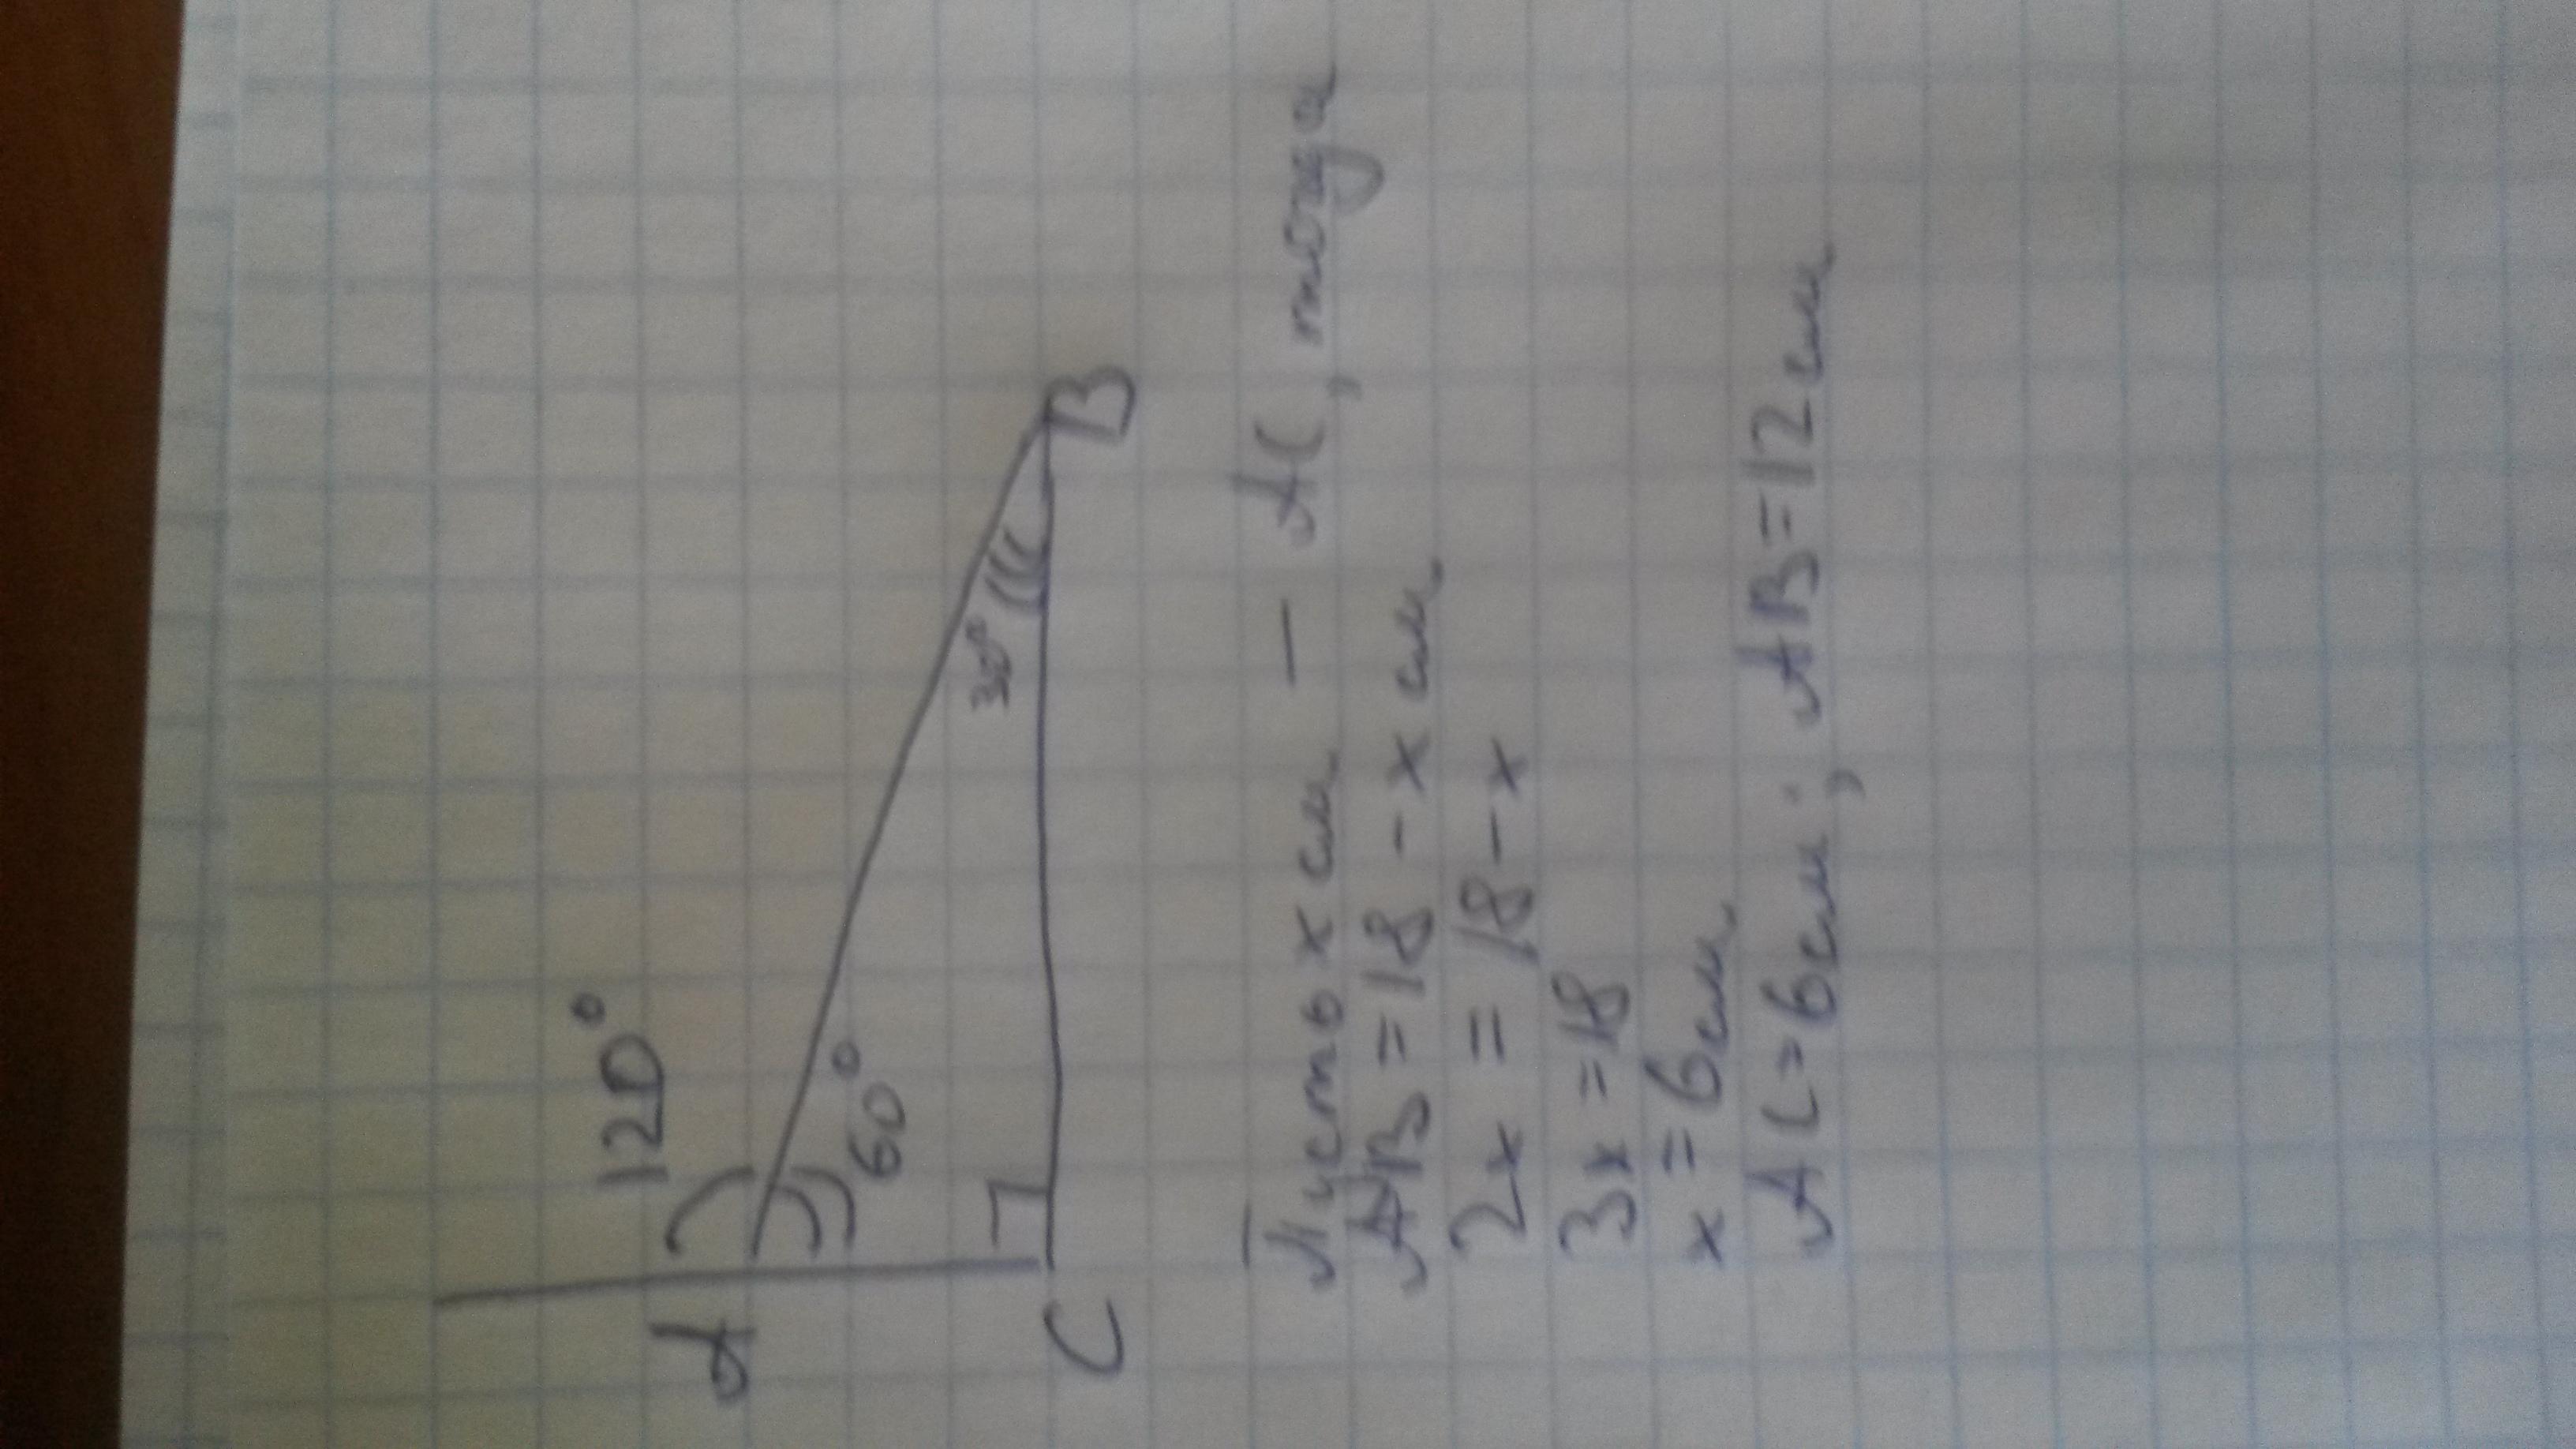 120°
A
60°
30°
C
B
Пусть x см — AC, тогда
AB = 18 - x см
2x = 18 - x
3x = 18
x = 6 см
AC = 6 см; AB = 12 см